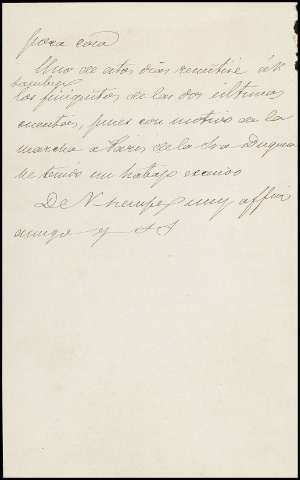 poca cosa
Uno de estos dias remitiré á V.
tambien
los finiquitos de las dos últimas
cuentas, pues con motivo de la
marcha a Paris de la Sra Duquesa
he tenido un trabajo excesivo
De V. siempre muy affmo
amigo y S S